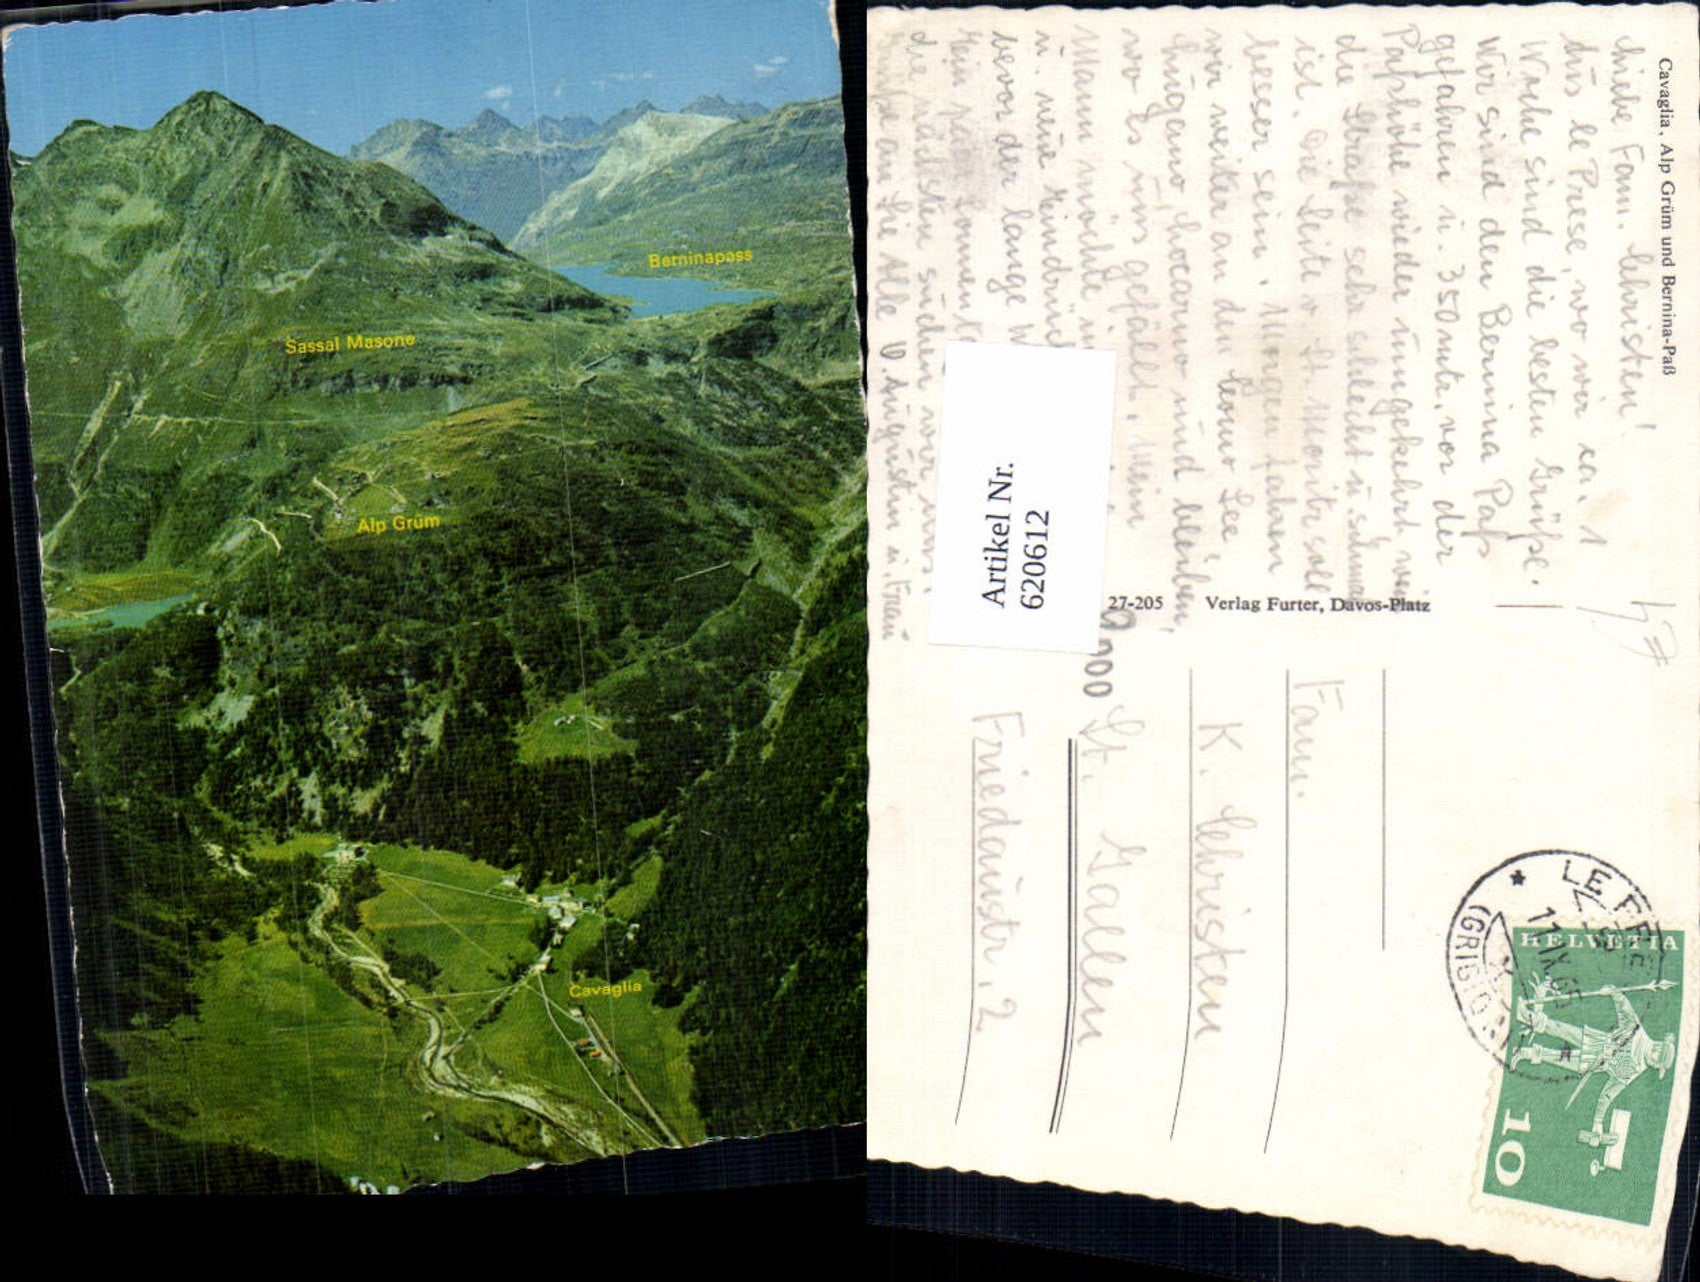 Berninapass
Sassal Masone
Alp Grüm
Cavaglia
Cavaglia, Alp Grüm und Bernina-Paß
Liebe Fam. Christen!
Aus le Prese, wo wir ca. 1
Woche sind die besten Grüße.
Wir sind den Bernina Paß
gefahren u. 350 mtr. vor der
Paßhöhe wieder umgekehrt weil
die Straße sehr schlecht u. schmal
ist. Die Seite v. St. Moritz soll
besser sein. Morgen fahren
wir weiter an den Comer See,
Lugano, Locarno und bleiben,
wo es uns gefällt. Mein
Mann möchte
u. neue Eindrücke
bevor der lange
kein Sommer
die nächsten suchen wir uns.
an Sie Alle V. Augustin u. Frau
Artikel Nr.
620612
27-205
Verlag Furter, Davos-Platz
9000
Fam.
K. Christen
St. Gallen
Friedaustr. 2
LE PRESE
(GRIGIONI)
HELVETIA
10